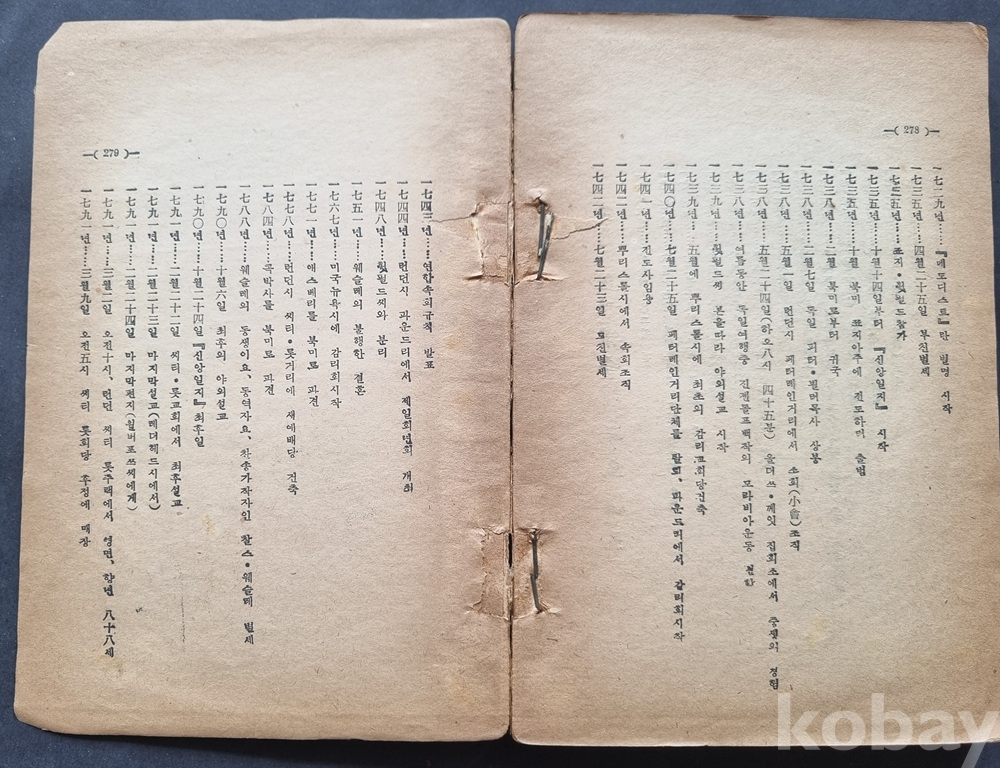 —( 278 )—
一七二九년……『메도디스트』란 별명 시작
一七三五년……四월二十五일 부친별세
一七三五년……쪼지·휫필드참가
一七三五년……十월十四일부터 『신앙일지』 시작
一七三五년……十월 북미 쪼지아주에 전도하며 출범
一七三八년……二월 북미로부터 귀국
一七三八년……二월七일 독일 피터·뵐러목사 상봉
一七三八년……五월一일 런던시 페터레인거리에서 소회(小會)조직
一七三八년……五월二十四일(하오八시 四十五분) 올더쓰·께잇 집회소에서 중생의 경험
一七三八년……여름동안 독일여행중 진젠돌프백작의 모라비아운동 견학
一七三九년……휫필드씨 본을따라 야외설교 시작
一七三九년……五월에 뿌리스톨시에 최초의 감리교회당건축
一七四〇년……七월二十五일 페터레인거리단체를 탈퇴, 파운드리에서 감리회시작
一七四一년……전도사임용
一七四二년……뿌리스톨시에서 속회조직
一七四二년……七월二十三일 모친별세
—( 279 )—
一七四三년……연합속회규칙 발표
一七四四년……런던시 파운드리에서 제일회년회 개최
一七四八년……휫필드씨와 분리
一七五一년……웨슬레의 불행한 결혼
一七六七년……미국뉴욕시에 감리회시작
一七七一년……애스베리를 북미로 파견
一七七八년……런던시 씨티·롯거리에 새예배당 건축
一七八四년……콕박사를 북미로 파견
一七八八년……웨슬레의 동생이요, 동역자요, 찬송가작자인 찰스·웨슬레 별세
一七九〇년……十월六일 최후의 야외설교
一七九〇년……十월二十四일『신앙일지』최후일
一七九一년……二월二十二일 씨티·롯교회에서 최후설교
一七九一년……二월二十三일 마지막설교(레더헤드시에서)
一七九一년……二월二十四일 마지막편지(윌버포쓰씨에게)
一七九一년……三월二일 오전十시, 런던 씨티 롯주택에서 영면, 향년 八十八세
一七九一년……三월九일 오전五시 씨티 롯회당 후정에 매장
kobay